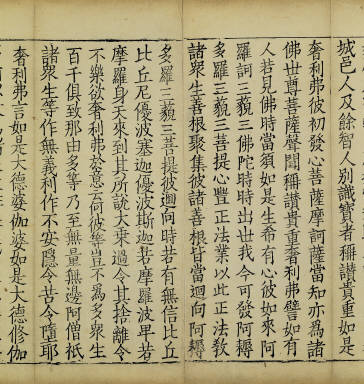 城邑人及餘智人別識寶者稱讚貴重如是
奢利弗彼初發心菩薩摩訶薩當知亦為諸
佛世尊菩薩聲聞稱讚貴重奢利弗譬如有
人若見佛時當須如是生希有心彼如來阿
羅訶三藐三佛陀時時出世我今可發阿耨
多羅三藐三菩提心豐正法業以此正法教
諸眾生善根聚集彼諸善根皆當迴向阿耨
多羅三藐三菩提彼迴向時若有無信比丘
比丘尼優波塞迦優波斯迦若摩羅波旬若
摩羅身天來到其所說大乘過令其捨離令
不樂欲奢利弗於意云何彼等豈不為多眾生
百千俱致那由多等乃至無量無邊阿僧祇
諸眾生等作無義利作不安隱令苦令墮耶
奢利弗言如是大德婆伽婆如是大德修伽